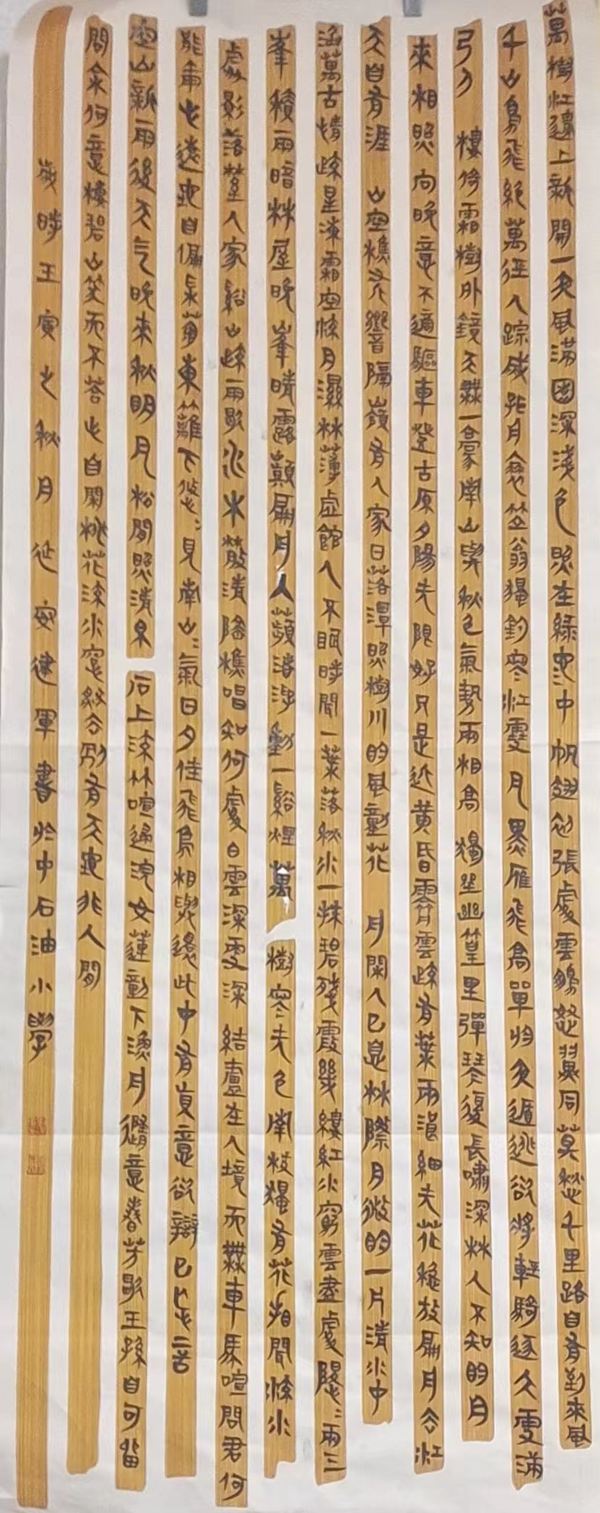 萬樹江邊上新開一夜風滿園深淺色照在綠波中 帆翅初張處雲鵬怒翼同莫愁千里路自有到來風
千山鳥飛絕萬徑人踪滅孤舟蓑笠翁獨釣寒江雪 月黑雁飛高單于夜遁逃欲將輕騎逐大雪滿
弓刀 樓倚霜樹外鏡天無一毫南山與秋色氣勢兩相高 獨坐幽篁里彈琴復長嘯深林人不知明月
來相照 向晚意不適驅車登古原夕陽无限好只是近黄昏 霽雲疏有葉雨浪細无花穩放扁舟去江
天自有涯 山空樵斧響隔嶺有人家日落潭照樹川明風動花 月閑人已息林際月微明一片清光中
涵萬古情 疏星凍霜空流月濕林薄虛館人不眠時聞一葉落 秋水一抹碧殘霞幾縷紅水窮雲盡處隱〻兩三
峯 積雨暗林屋晚峯晴露巔扁舟入蘋渚浮動一谿煙 萬樹寒无色南枝獨有花香聞流水
處影落野人家 谿山疏雨歇水木散清陰樵唱知何處白雲深更深 結廬在人境而無車馬喧問君何
能爾心遠地自偏采菊東籬下悠〻見南山〻氣日夕佳飛鳥相與還此中有真意欲辯已忘言
空山新雨後天氣晚來秋明月松間照清泉石上流竹喧歸浣女蓮動下漁舟隨意春芳歇王孫自可留
問余何意棲碧山笑而不答心自閑桃花流水窅然去別有天地非人間
歲時壬寅之秋月延安建軍書於中石油小學